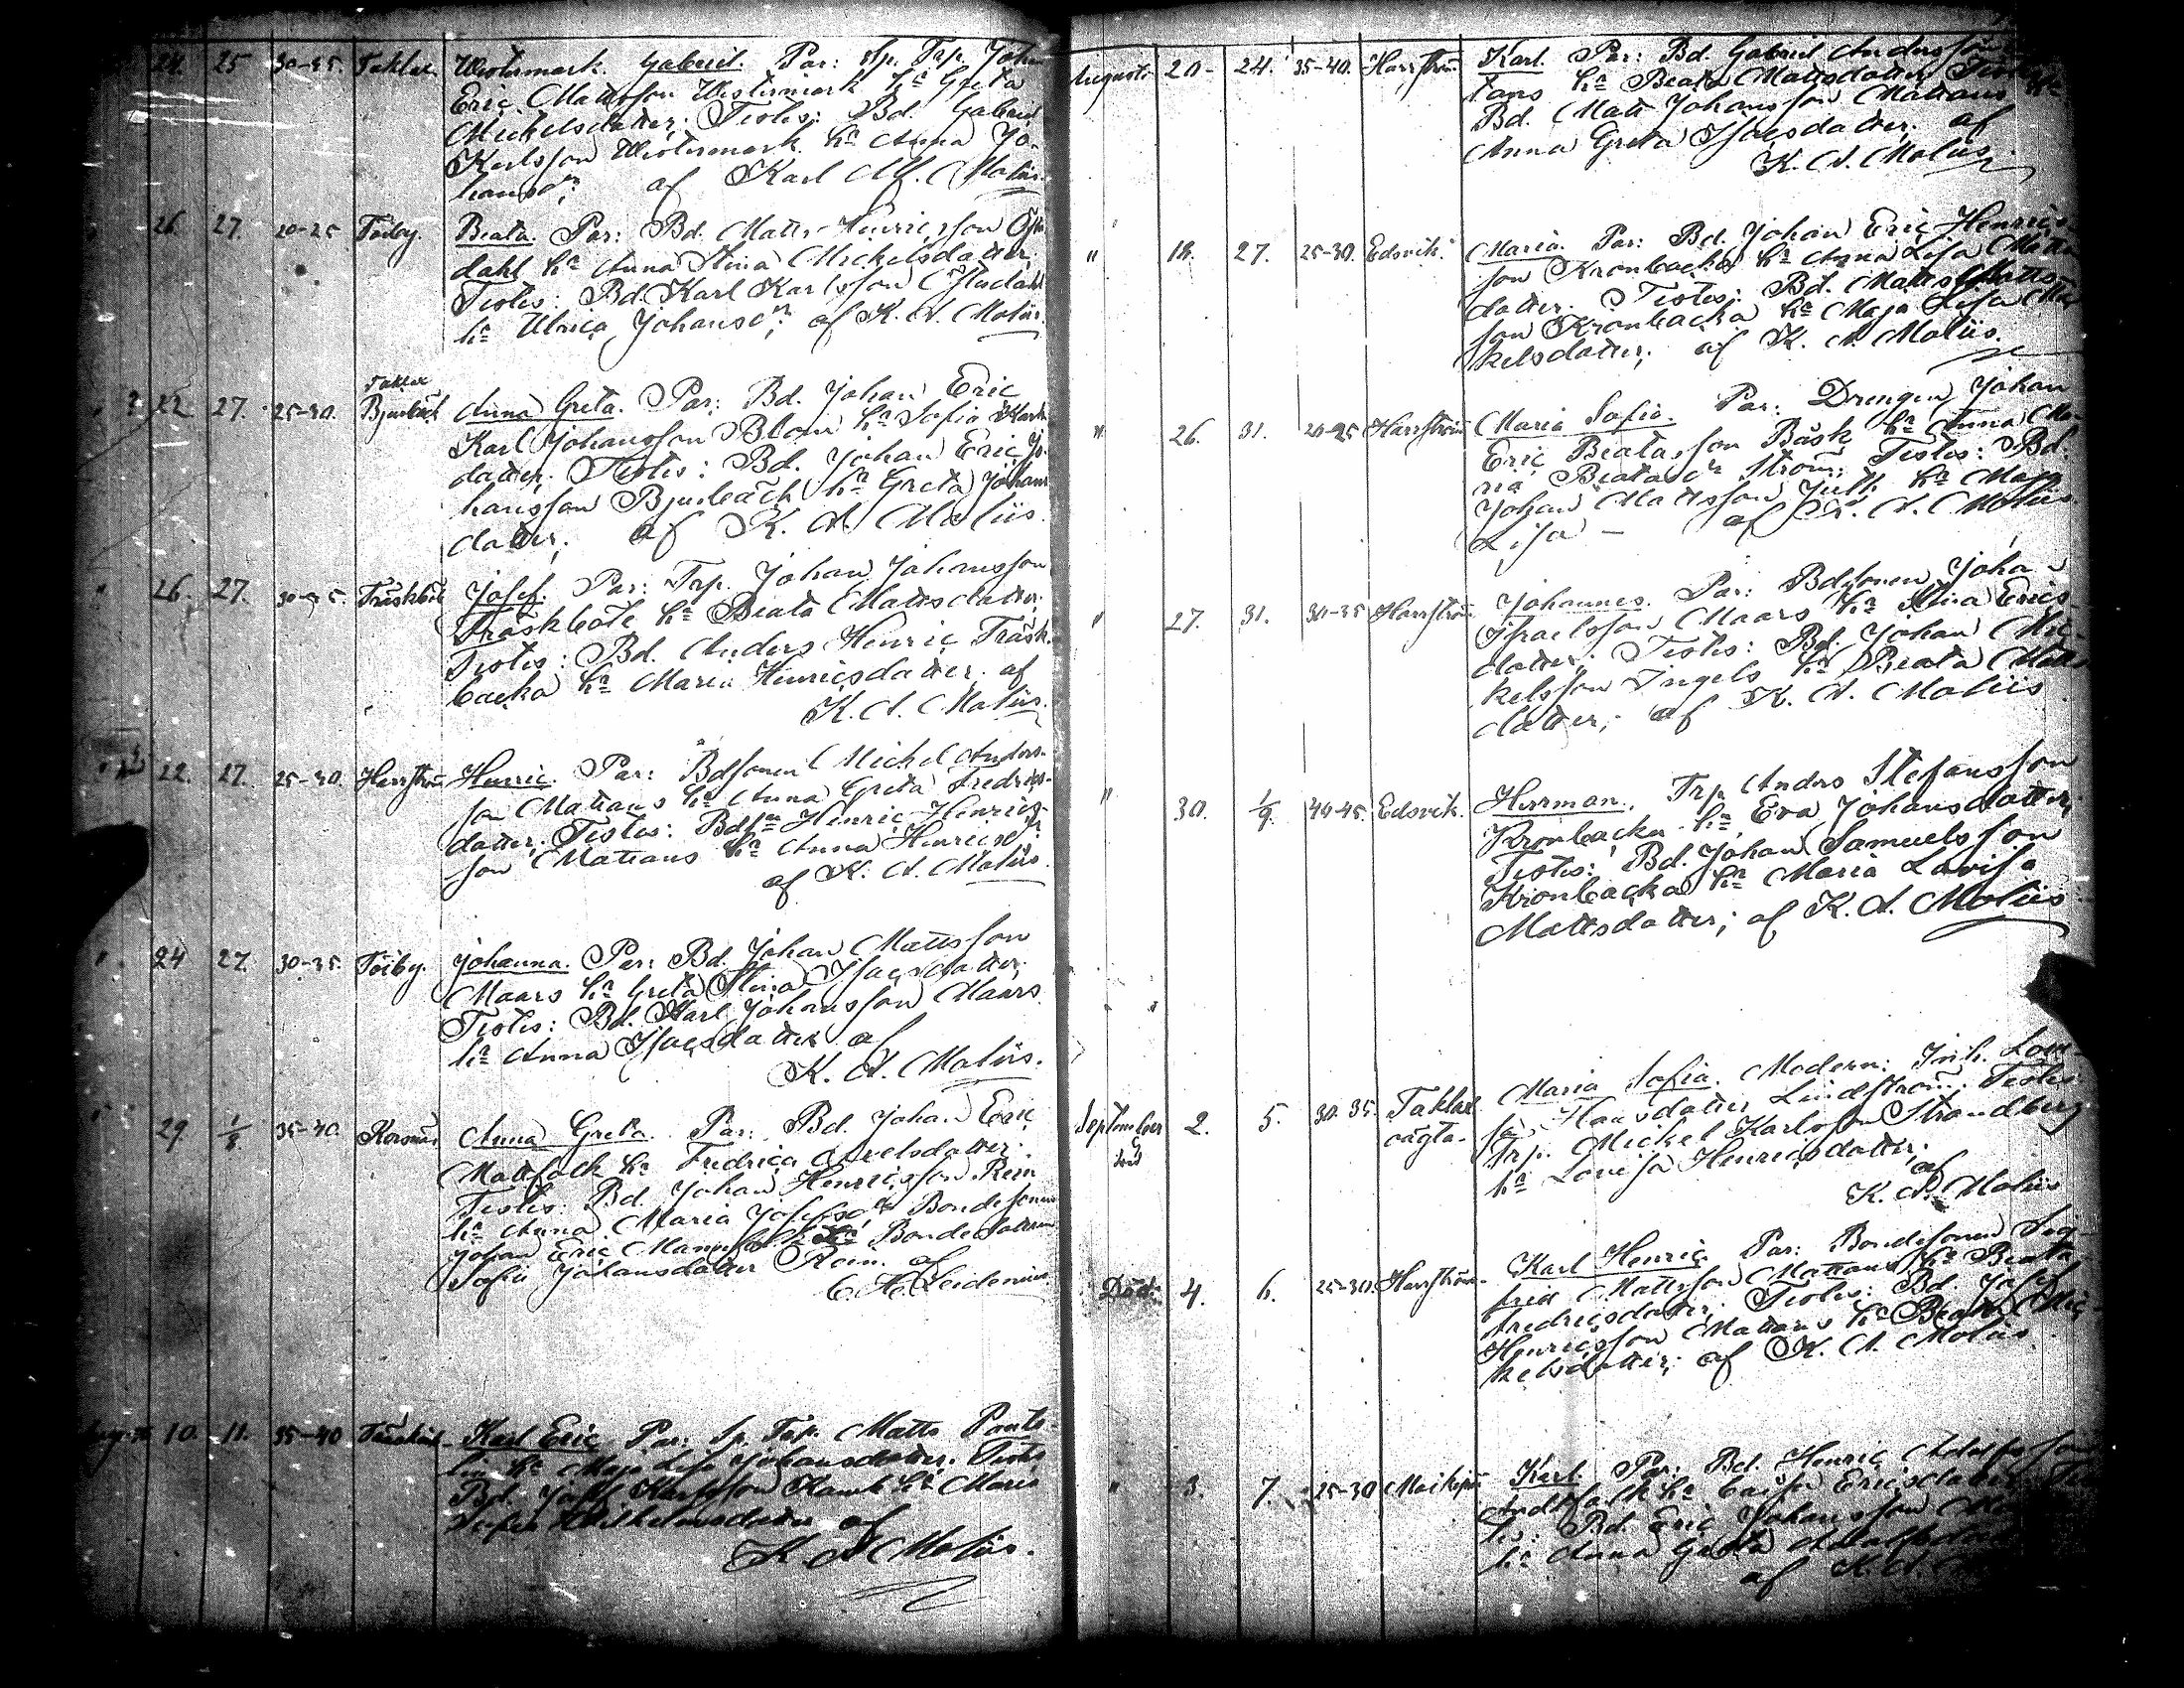 24. 25 30-35. Taklax. Westermark. Gabriel. Par: Sp. Trp. Johan
Eric Mattsson Westermark hª Greta
Mickelsdatter; Testes: Bd. Gabriel
Karlsson Westermark hª Anna Jo-
hansdr; af Karl M. Molüs.
26. 27. 20-25 Töiby. Beata. Par: Bd. Matts Henricsson
dahl hª Anna Stina Mickelsdatter;
Testes: Bd. Karl Karlsson
hª Ulrica Johansdr; af K. A. Molüs.
22. 27. 25-30. Taklax Bjurbäck Anna Greta. Par: Bd. Johan Eric
Karl Johansson Blom hª Sofia Karls-
datter. Testes: Bd. Johan Eric Jo-
hansson Bjurbäck hª Greta Johans
datter; af K. A. Molüs.
" 26. 27. 30-35. Träskböle Josef. Par: Trp. Johan Johansson
Träskböle hª Beata Mattsdatter;
Testes: Bd. Anders Henric Träsk-
backa hª Maria Henricsdatter. af
K. A. Molüs.
22. 27. 25-30. Harrström Henric. Par: Bdsonen Michel Anders-
son Mattans hª Anna Greta Fredrics-
datter. Testes: Bdsn Henric Henrics-
son Mattans hª Anna Henricsdr;
af K. A. Molüs.
" 24 27. 30-35. Töiby. Johanna. Par: Bd. Johan Mattsson
Maars hª Greta Stina Isacsdatter.
Testes: Bd. Karl Johansson Maars
hª Anna Isacsdatter af
K. A. Molüs.
" 29. 1/8. 35-40. Korsnäs Anna Greta. Par: Bd. Johan Eric
Mattfolk hª Fredrica Axelsdatter.
Testes: Bd. Johan Henricsson Rein
hª Anna Maria Josefsdr Bondesonen
Johan Eric Bondedatteren
Sofia Johansdatter Rein. af
C. H. Leidenius
10. 11. 35-40 Karl Eric Par: Sp. Trp. Matts
hª Maja Lisa Johansdatter. Testes
Bd. Josef Karlsson Kamb hª Maria
Wilhelmsdatter af
K. A. Molüs.
Augusti 20- 24. 35-40. Harrström Karl. Par: Bd. Gabriel Andersson
hª Beata Mattsdatter
Bd. Matt Johansson Mattans hª
Anna Greta Isacsdatter. af
K. A. Molüs.
" 18. 27. 25-30. Edsvik. Maria. Par: Bd. Johan Eric Henrics-
son Kronbacka hª Anna Lisa Matts
datter. Testes: Bd. Matts Matts-
son Kronbacka hª Maja Lisa Mic
kelsdatter; af K. A. Molüs.
" 26. 31. 20-25 Harrström Maria Sofia. Par: Drengen Johan
Eric Beatasson Båsk hª Anna Ma-
ria Beatasdr Ström; Testes: Bd.
Johan Mattsson Juth hª Maja
Lisa – af K. A. Molüs.
" 27. 31. 30-35 Harrström Johannes. Par: Bdsonen Johan
Israelsson Maars hª Stina Erics-
datter; Testes: Bd. Johan Mic-
kelsson Ingels hª Beata Matts
datter; af K. A. Molüs
" 30. 1/9. 40-45. Edsvik. Herman. Trp. Anders Stefansson
Kronbacka hª Eva Johansdatter;
Testes: Bd. Johan Samuelsson
Kronbacka hª Maria Lovisa
Mattsdatter; af K. A. Molüs
September 2. 5. 30-35. Taklax Maria Sofia. Modern: Inh. Lovi-
sa Hansdatter Lindström. Testes
Trp. Mickel Karlsson Strandberg
hª Lovisa Henricsdatter;
af
K. A. Molüs
Död. 4. 6. 25-30. Harrström. Karl Henric Par: Bondesonen Sig-
frid Mattsson Mattans hª Beata
Fredricsdatter; Testes: Bd. Josef
Henricsson Mattans hª Beata Mic
kelsdatter; af K. A. Molüs
" 3. 7. 25-30 Karl. Par: Bd. Henric Adolfsson
hª Caisa Ericsdatter
Bd. Eric Johansson
hª Anna Greta
af K. A.